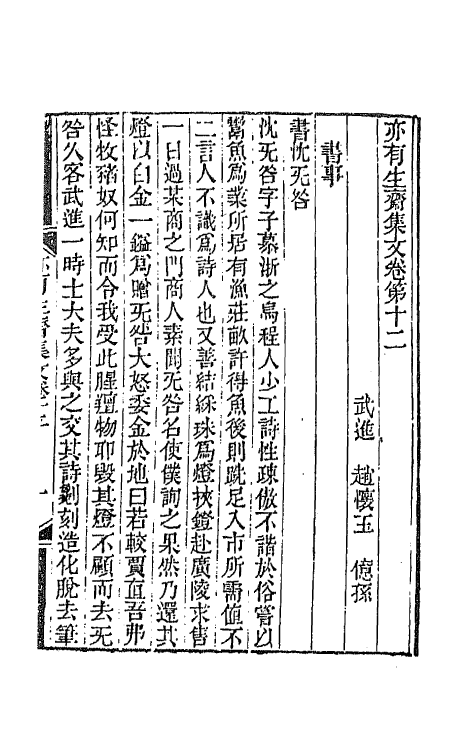 亦有生齋集文卷第十二
武進 趙懷玉 億孫
書事
書沈旡咎
沈旡咎字子慕浙之烏程人少工詩性疎傲不諧於俗嘗以
鬻魚爲業所居有漁莊畝許得魚後則跣足入市所需値不
二言人不識爲詩人也又善結綵珠爲燈挾鐙赴廣陵求售
一日過某商之門商人素聞旡咎名使僕詢之果然乃還其
燈以白金一鎰爲贈旡咎大怒委金於地曰若較賈直吾弗
怪牧豬奴何知而令我受此腥羶物耶毀其燈不顧而去旡
咎久客武進一時士大夫多與之交其詩劌刻造化脫去筆
亦有生齋集文卷十二 一